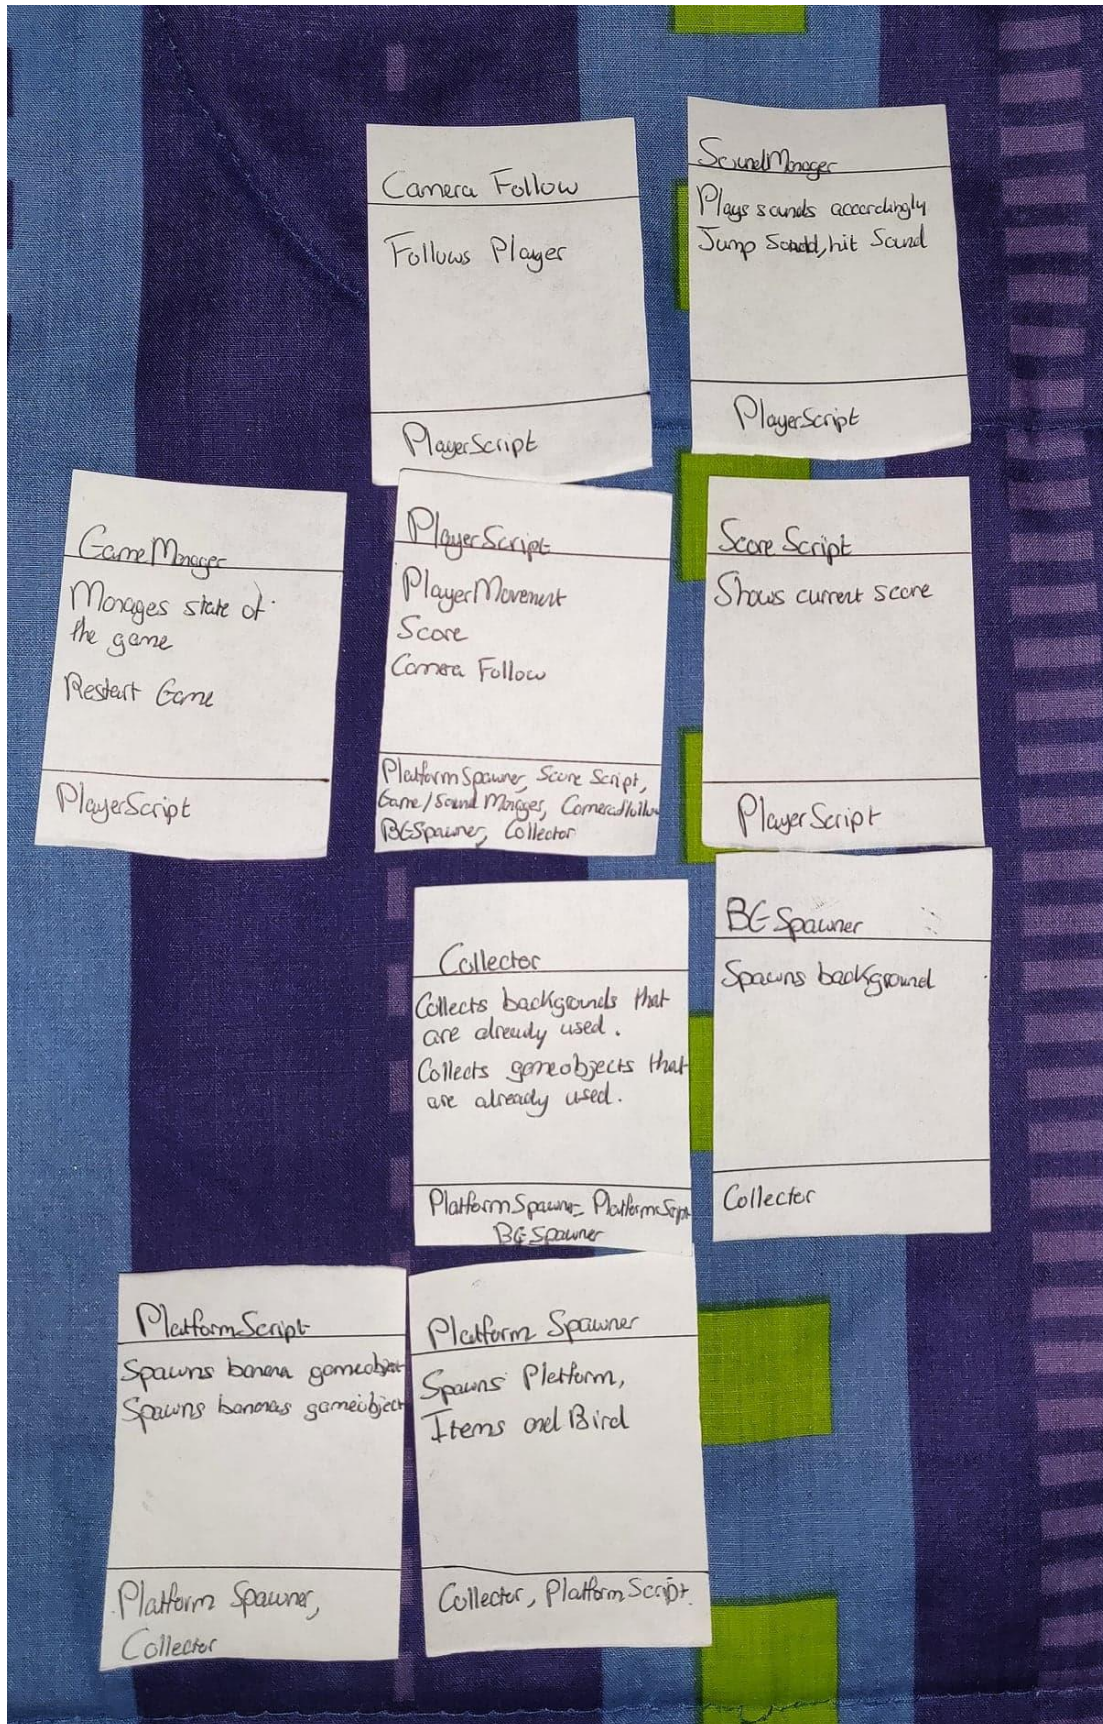 Camera Follow
Follows Player
PlayerScript
SoundManager
Plays sounds accordingly
Jump Sound, hit Sound
PlayerScript
GameManager
Manages state of
the game
Restart Game
PlayerScript
PlayerScript
PlayerMovement
Score
Camera Follow
PlatformSpawner, Score Script,
Game/Sound Manager, CameraFollow
BGSpawner, Collector
Score Script
Shows current score
PlayerScript
Collector
Collects backgrounds that
are already used.
Collects gameobjects that
are already used.
PlatformSpawner PlatformScript
BGSpawner
BGSpawner
Spawns background
Collector
PlatformScript
Spawns banana gameobject
Spawns bananas gameobject
Platform Spawner,
Collector
Platform Spawner
Spawns Platform,
Items and Bird
Collector, PlatformScript.